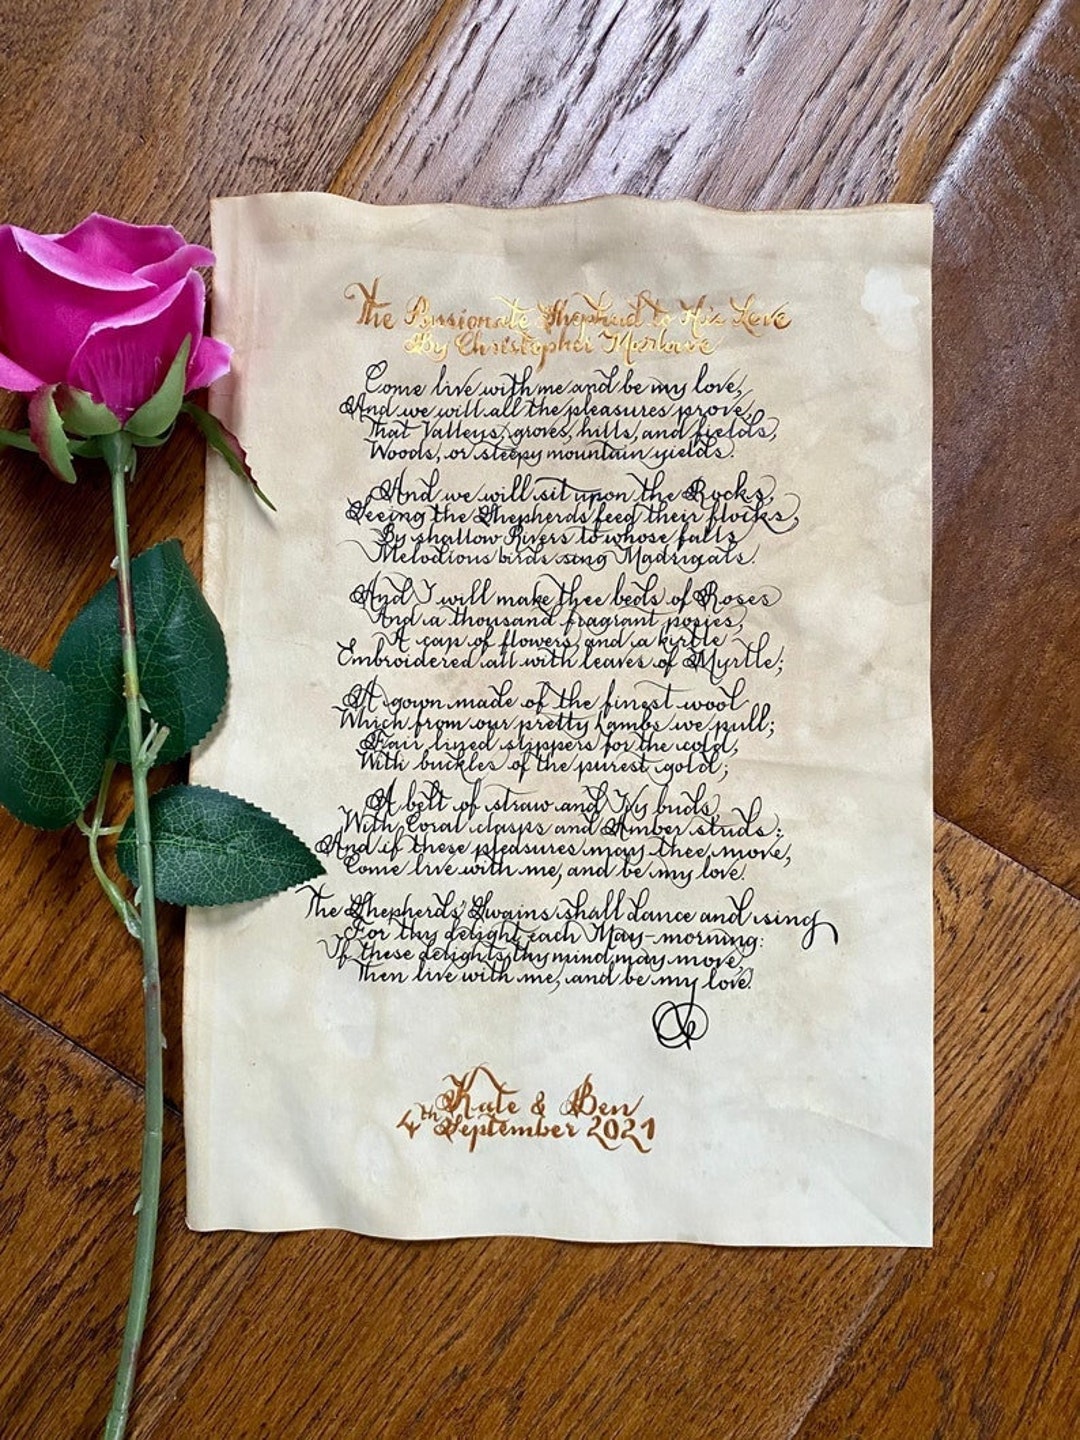 The Passionate Shepherd to His Love
By Christopher Marlowe
Come live with me and be my love,
And we will all the pleasures prove,
That Valleys, groves, hills, and fields,
Woods, or steepy mountain yields.
And we will sit upon the Rocks,
Seeing the Shepherds feed their flocks,
By shallow Rivers to whose falls
Melodious birds sing Madrigals.
And I will make thee beds of Roses
And a thousand fragrant posies,
A cap of flowers, and a kirtle
Embroidered all with leaves of Myrtle;
A gown made of the finest wool
Which from our pretty Lambs we pull;
Fair lined slippers for the cold,
With buckles of the purest gold;
A belt of straw and Ivy buds,
With Coral clasps and Amber studs:
And if these pleasures may thee move,
Come live with me, and be my love.
The Shepherds' Swains shall dance and sing
For thy delight each May-morning:
If these delights thy mind may move,
Then live with me, and be my love.
Kate & Ben
4th September 2021